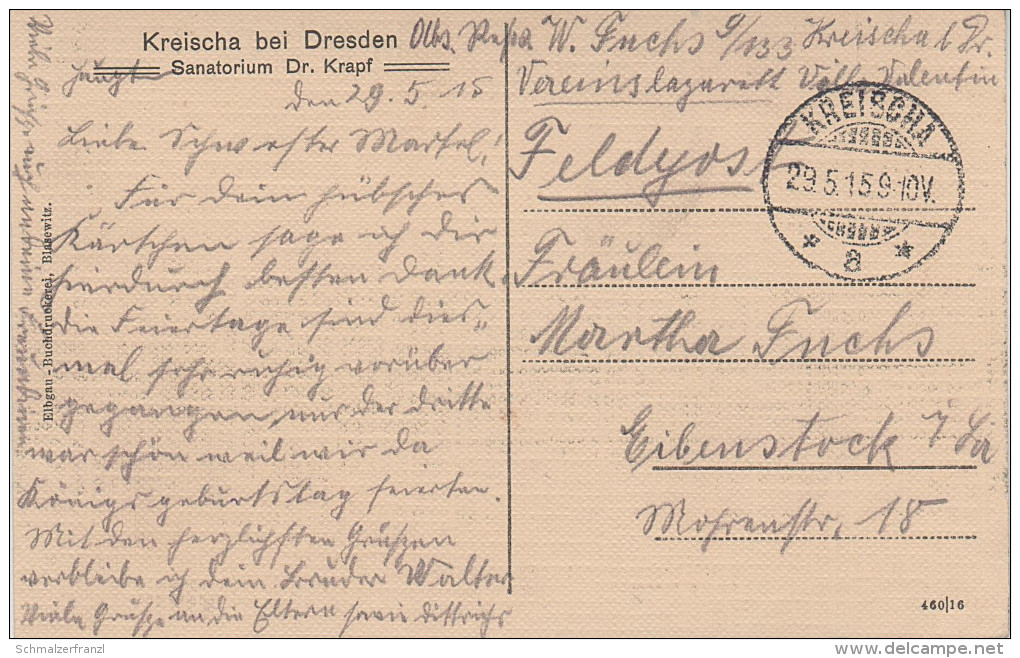 Kreischa bei Dresden
Sanatorium Dr. Krapf
Haupt
den 29. 5. 15
Liebe Schwester Martel!
Für dein hübsches
Kärtchen sage ich Dir
hierdurch besten Dank.
Die Feiertage sind dies-
mal sehr ruhig vorüber
gegangen, nur der dritte
war schön weil wir da
Königsgeburtstag feierten.
Mit den herzlichsten Grüßen
verbleibe ich dein Bruder Walter
Viele Grüße an die Eltern sowie Dittrichs
Viele Grüße auch an meine
Elbgau-Buchdruckerei, Blasewitz.
Abs. W. Fuchs 9/133 Kreischa b Dr.
Vereinslazarett Valentin
Feldpost
KREISCHA
29.5.15.9-10V.
* a *
Fräulein
Martha Fuchs
Eibenstock i/Sa
Mohrenstr. 18
460|16
Schmalzerfranzl
delcampe.net